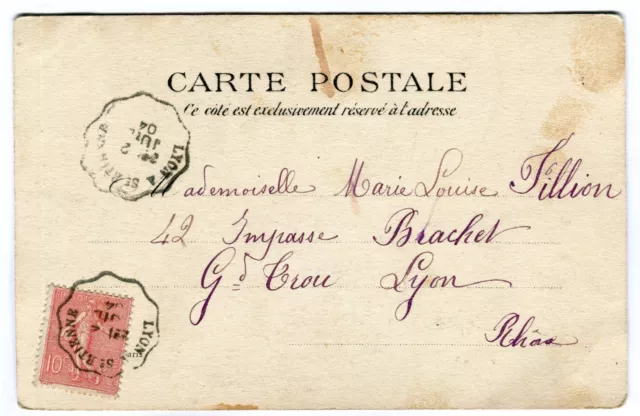 CARTE POSTALE
Ce côté est exclusivement réservé à l'adresse
LYON A ST ETIENNE
2E
2
JUIL
04
Mademoiselle Marie Louise Fillion
42 Impasse Brachet
Gd Trou Lyon
Rhône
LYON ST ETIENNE
2E
2
04
10c
Paris